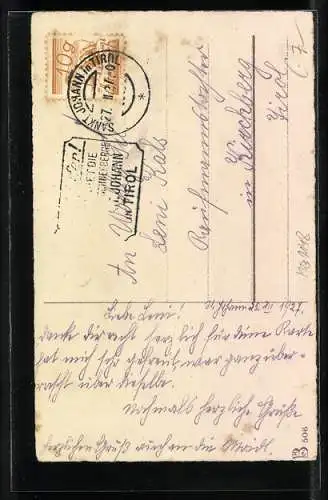 10g
SANKT JOHANN in TIROL
JOHANN
in TIROL
An
Leni Kals
Kaufmannstochter
in Kirchberg
Tirol
St. Johann 25. XII 1927.
Liebe Leni!
danke dir recht herzlich für deine Karte
hat mich sehr gefreut, war ganz über-
rascht über dieselbe.
Nochmals herzliche Grüße
herzlichen Gruß auch an die
506